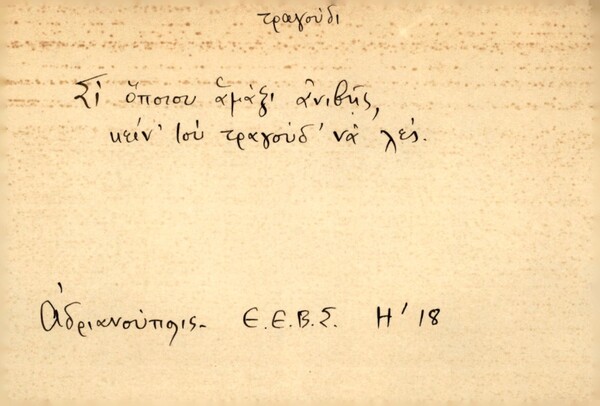 τραγούδι
Σὶ ὅποιου ἁμάξι ἀνιβῇς,
κεῖν' τοὺ τραγούδ' νὰ λές.
Ἀδριανούπολις. Ε.Ε.Β.Σ. Η' 18